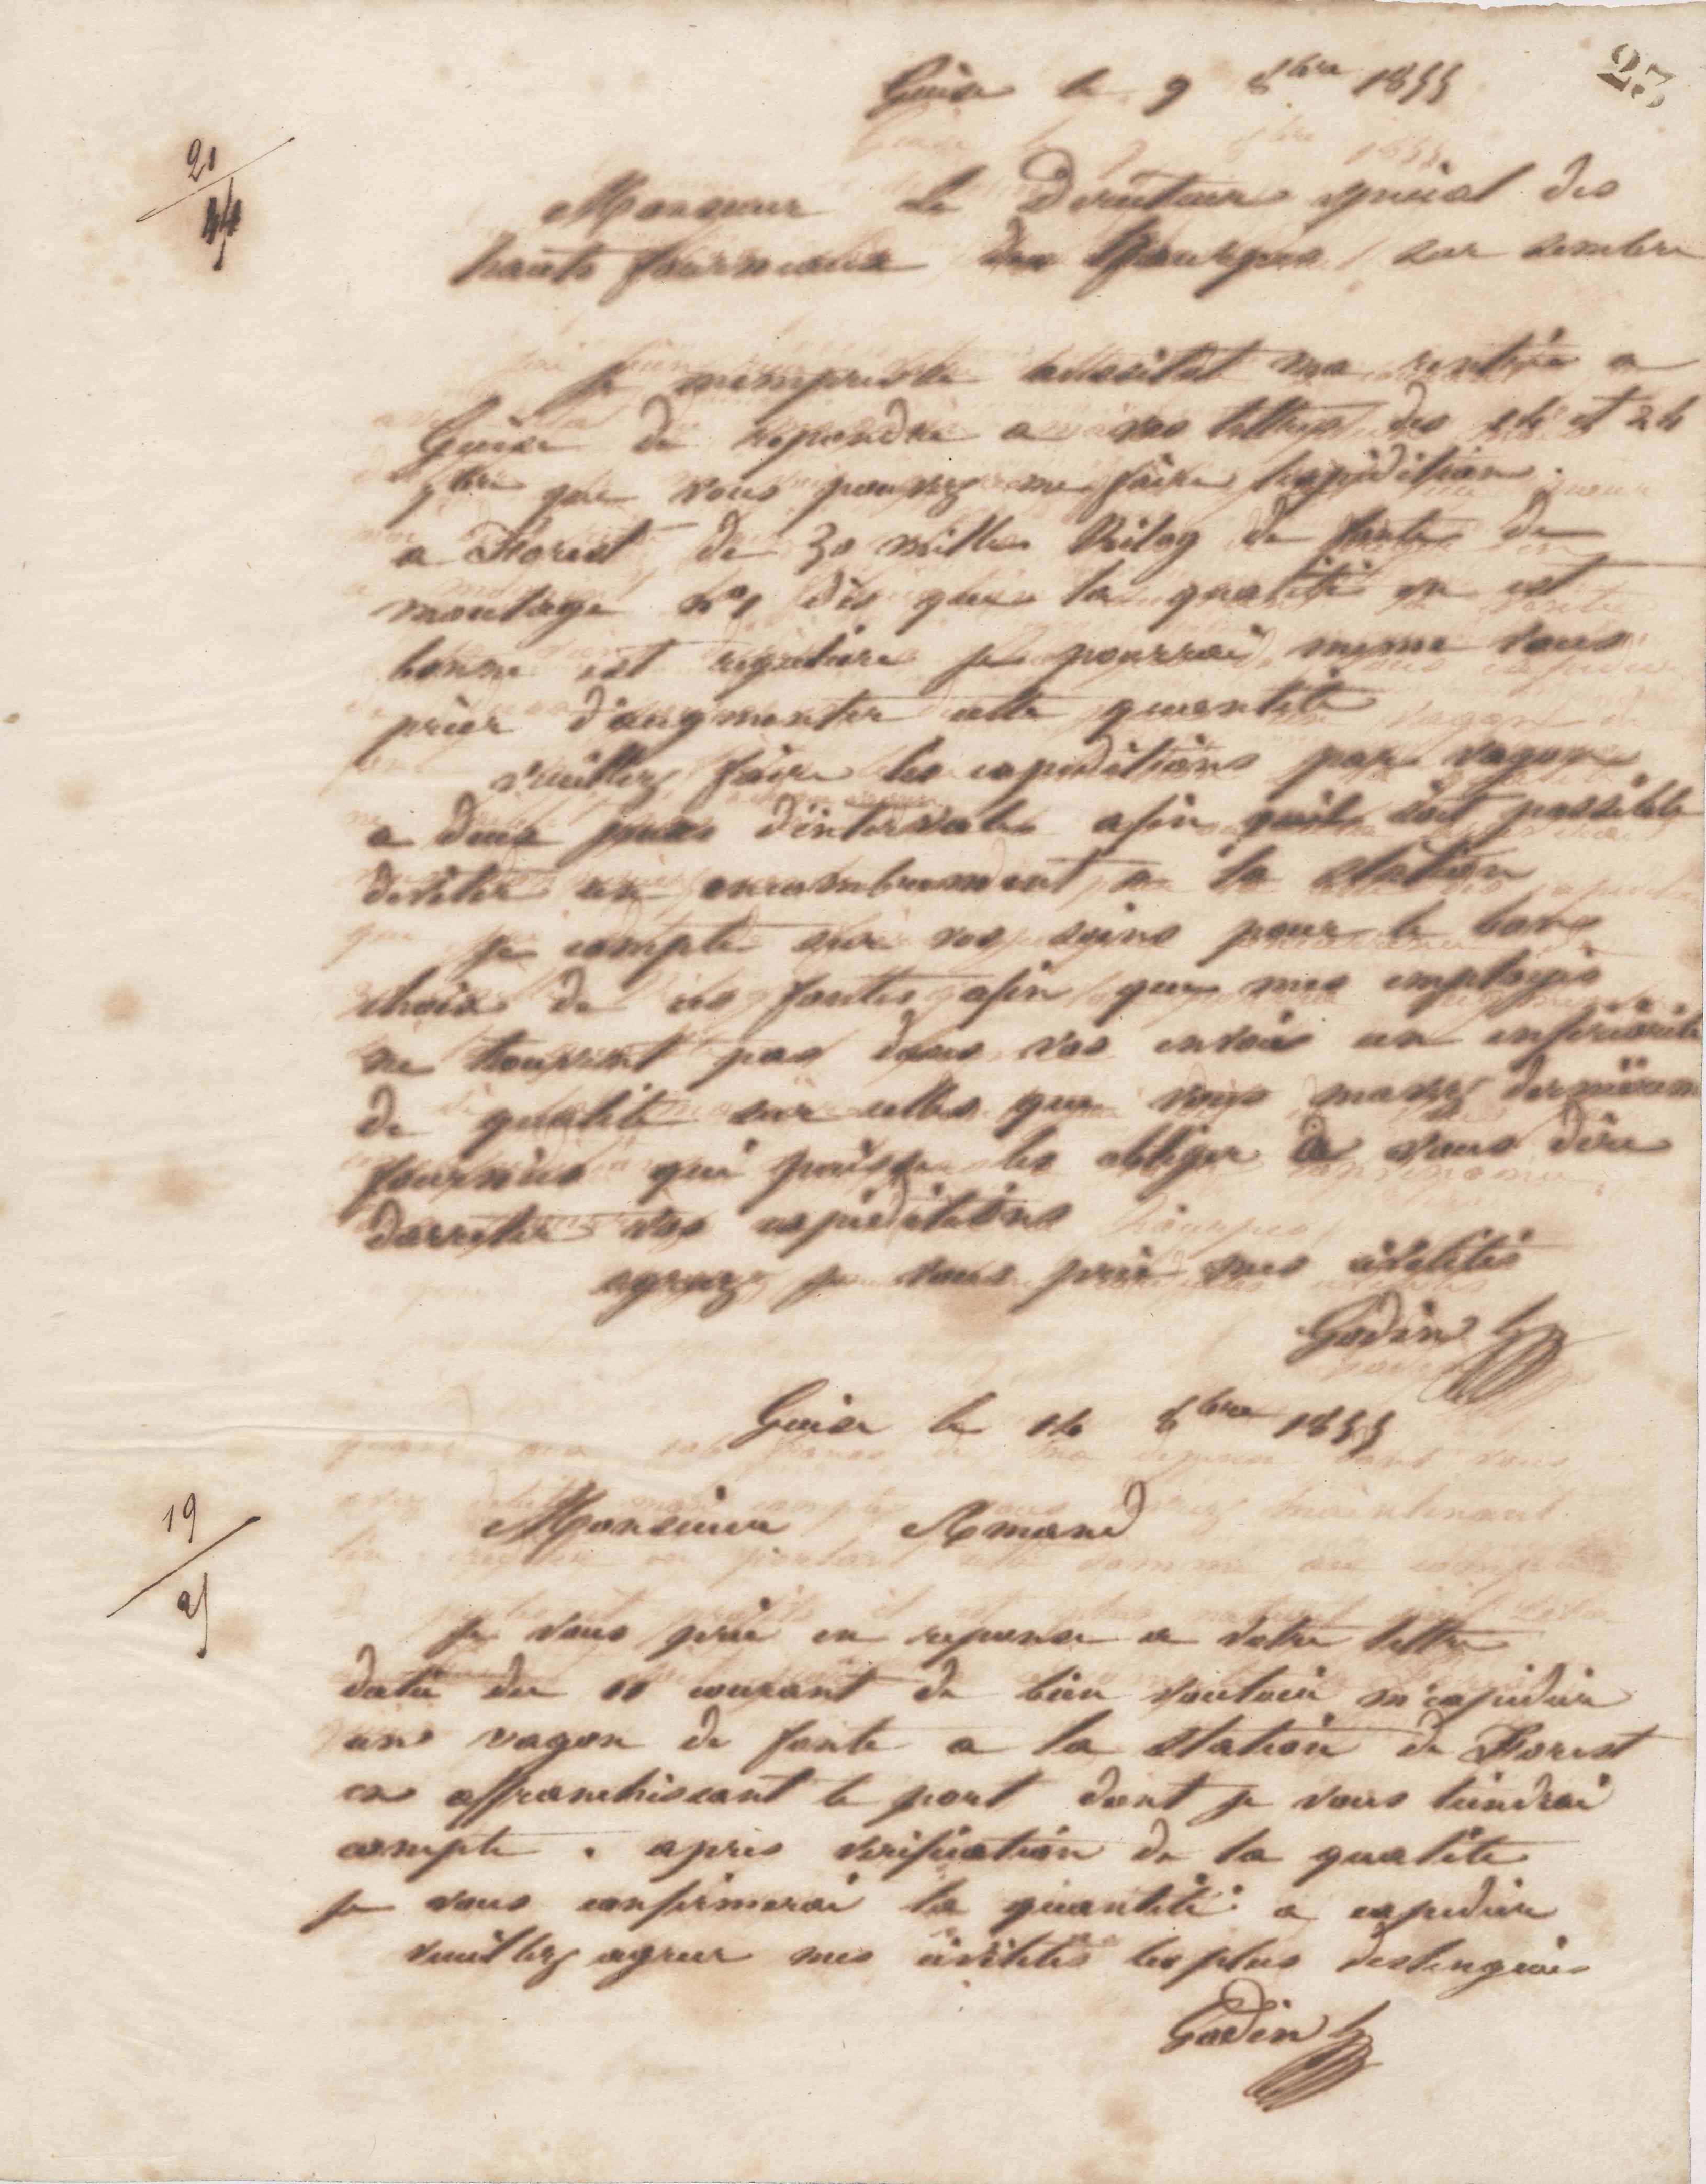 23
Guise le 9 8bre 1855
21
44
Monsieur Le Directeur spécial des
hauts fourneaux des sur sambre
je mempresse aussitot ma rentrée a
Guise de repondre a vos lettres des 14 et 24
7bre que vous pouvez me faire lexpédition
a Forest de 30 mille Kilog de fonte de
moulage no 1 dès que la qualité en est
bonne est reguliere je pourrai meme vous
prier d'augmenter cette quantité
veuillez faire les expeditions par vagon
a deux jours d'intervale afin quil soit possible
deviter un encombrement a la station
je compte sur vos soins pour le bon
choix de ces fontes afin que mes employés
ne trouvent pas dans vos envois un infériorité
de qualité sur celles que vous mavez dernièrem
fournies qui puisse les obliger de vous dire
darreter vos expeditions
agreez je vous prie mes civilités
Godin
Guise le 14 8bre 1855
19
25
Monsieur Amand
je vous prie en reponse a votre lettre
datée du 11 courant de bien vouloir m'expedier
un vagon de fonte a la station de Forest
en affranchissant le port dont je vous tiendrai
compte . apres verification de la qualité
je vous confirmerai la quantité a expedier
veuillez agreer mes civilités les plus destinguées
Godin